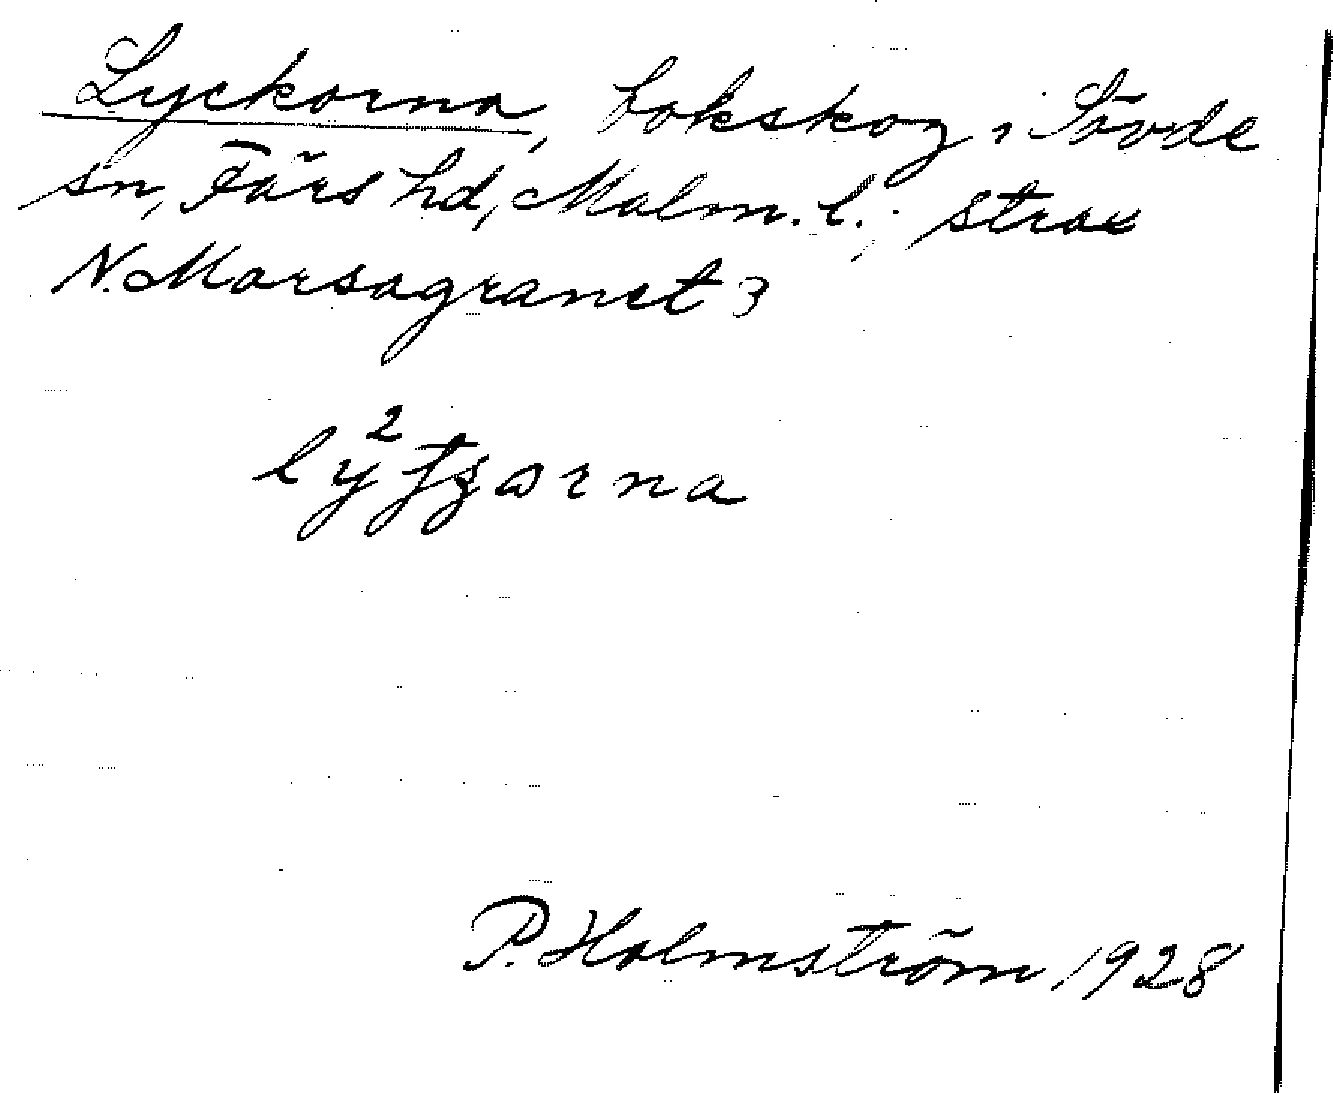 Lyckorna, bokskog i Sövde
sn, Färs hd, Malm. l.; strax
N. Morsagranet 3
P. Holmström 1928